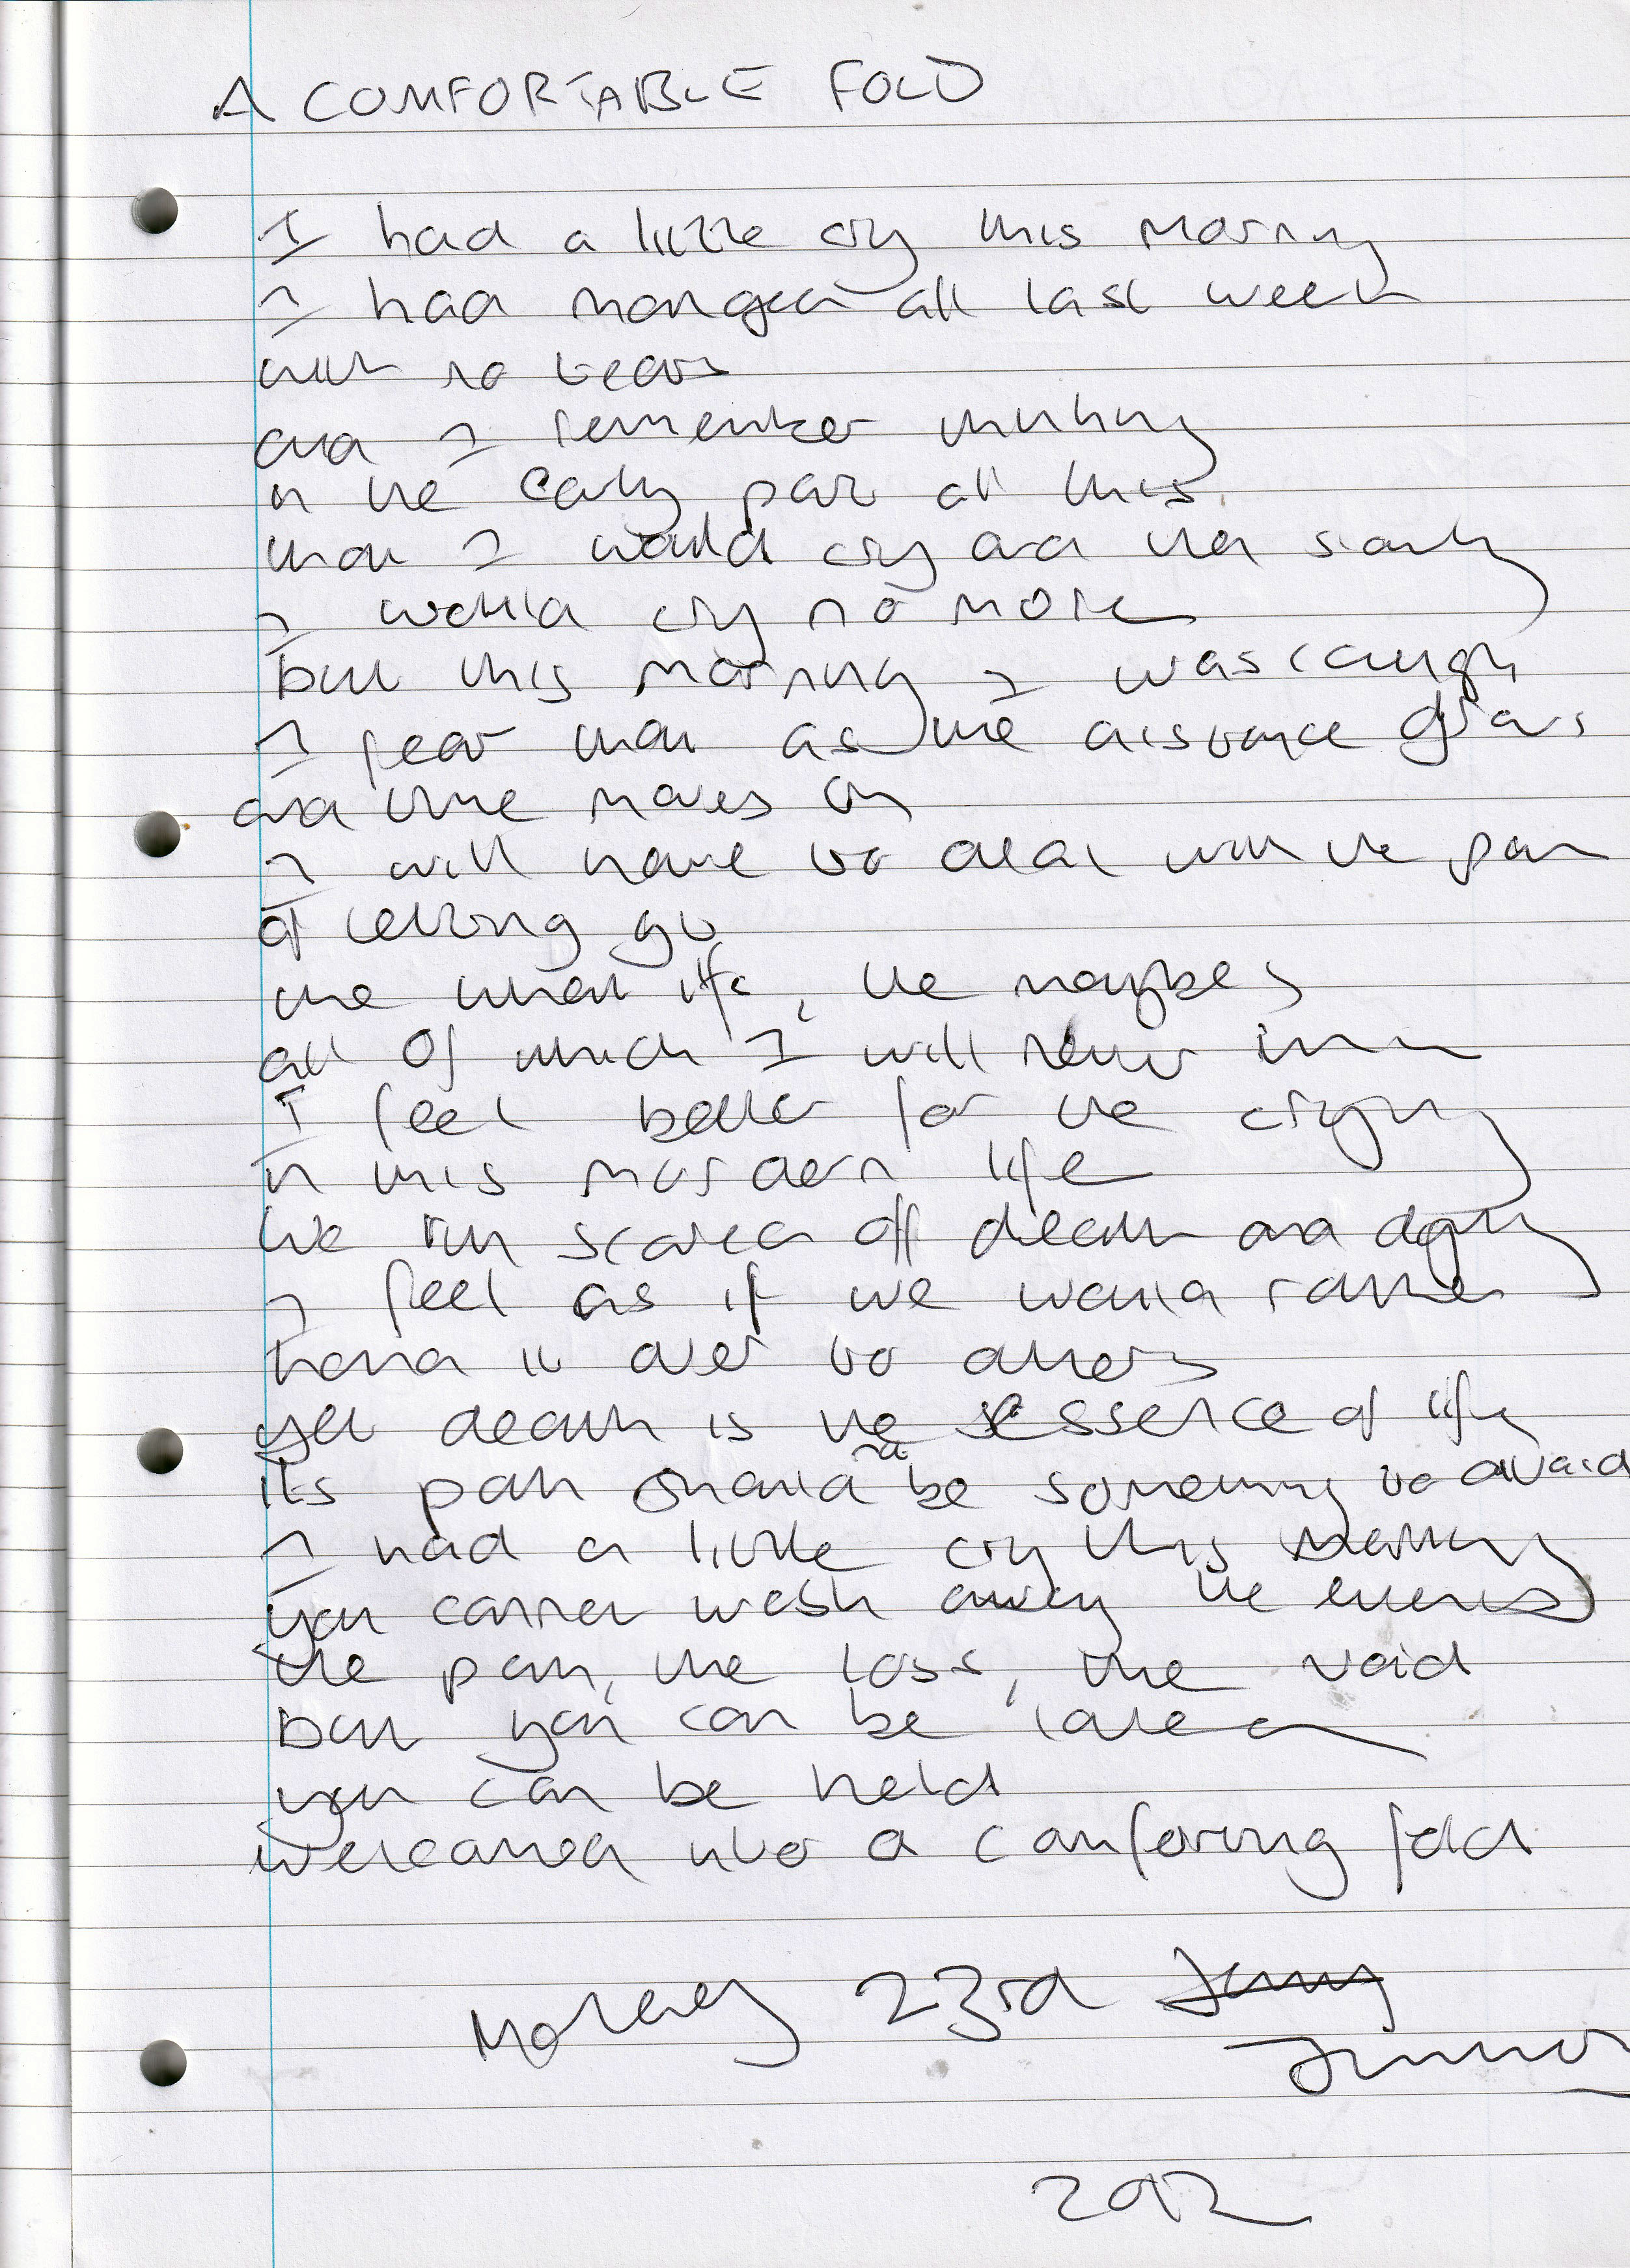 A COMFORTABLE FOLD
I had a little cry this morning
I had managed all last week
with no tears
and I remember thinking
in the early part of this
that I would cry and then slowly
I would cry no more
but this morning I was caught
I fear that as the distance grows
and time moves on
I will have to deal with the pain
of letting go
the what ifs, the maybes
all of which I will never know
I feel better for the crying
in this modern life
we run scared of death and dying
I feel as if we would rather
hand it over to others
yet death is the essence of life
its path should not be something to avoid
I had a little cry this morning
you cannot wash away the events
the pain, the loss, the void
but you can be loved
you can be held
welcomed into a comforting fold
Monday 23rd
January
2012